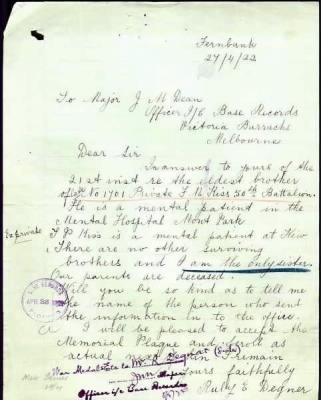 Fernbank
27/4/22
To Major J M Dean
Officer I/C Base Records
Victoria Barracks
Melbourne
Dear Sir
In answer to yours of the
21st inst re the eldest brother
of No 1701 Private F R Kiss 50th Battalion.
He is a mental patient in the
Mental Hospital Mont Park
Kiss is a mental patient at Kew
There are no other surviving
brothers and I am the only sister.
Our parents are deceased.
Will you be so kind as to tell me
the name of the person who sent
the information in to the office.
I will be pleased to accept the
Memorial Plaque and Scroll as
actual next of kin I remain
Yours faithfully
Ruby E Degner
APR 28 1922
War Medals etc to Mrs R Degner (Sister)
Major
Officer i/c Base Records